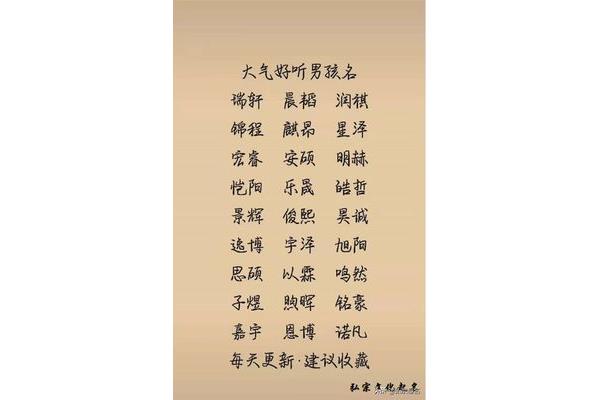 大气好听男孩名
瑞轩 晨韬 润祺
锦程 麒昂 星泽
宏睿 安硕 明赫
恺阳 乐晟 皓哲
景辉 俊熙 昊诚
逸博 宇泽 旭阳
思硕 以霖 鸣然
子煜 煦晖 铭豪
嘉宇 恩博 诺凡
每天更新·建议收藏
弘宗文化起名